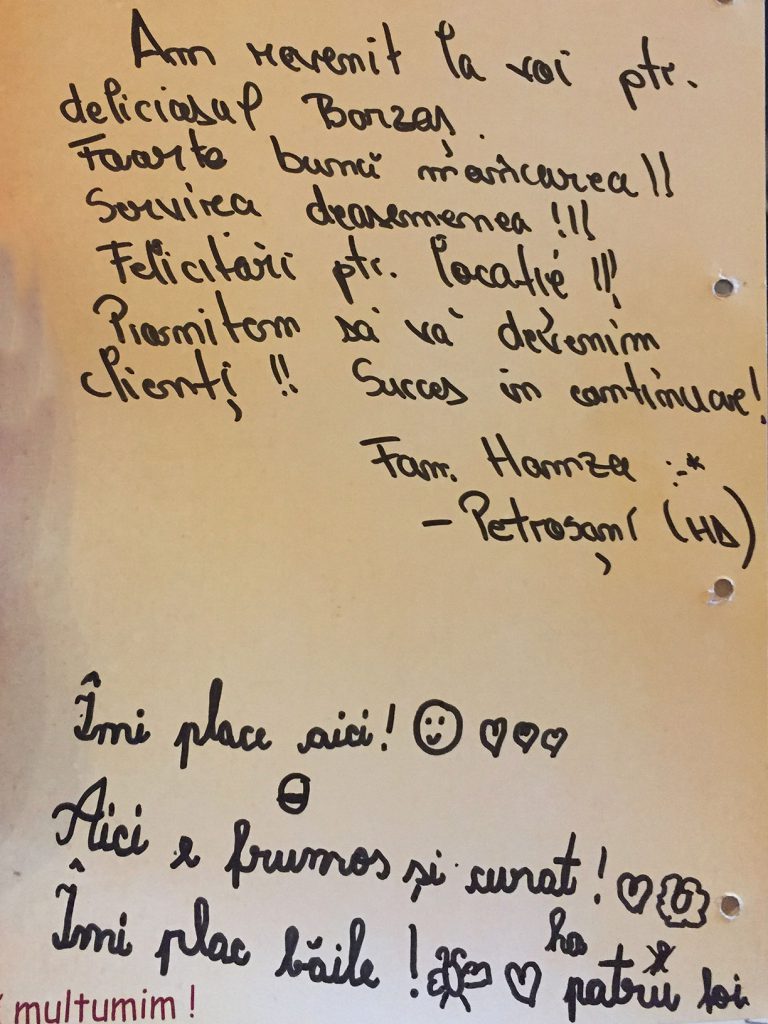 Am revenit la voi ptr.
deliciosul Borzaș.
Foarte bună mâncarea!!
Servirea deasemenea!!!
Felicitări ptr. locație!!!
Promitem să vă devenim
clienți!! Succes in continuare!
Fam. Hamza :-*
- Petroșani (HD)
Îmi place aici!
Aici e frumos și curat!
Îmi plac băile!
ha
patru foi
multumim!